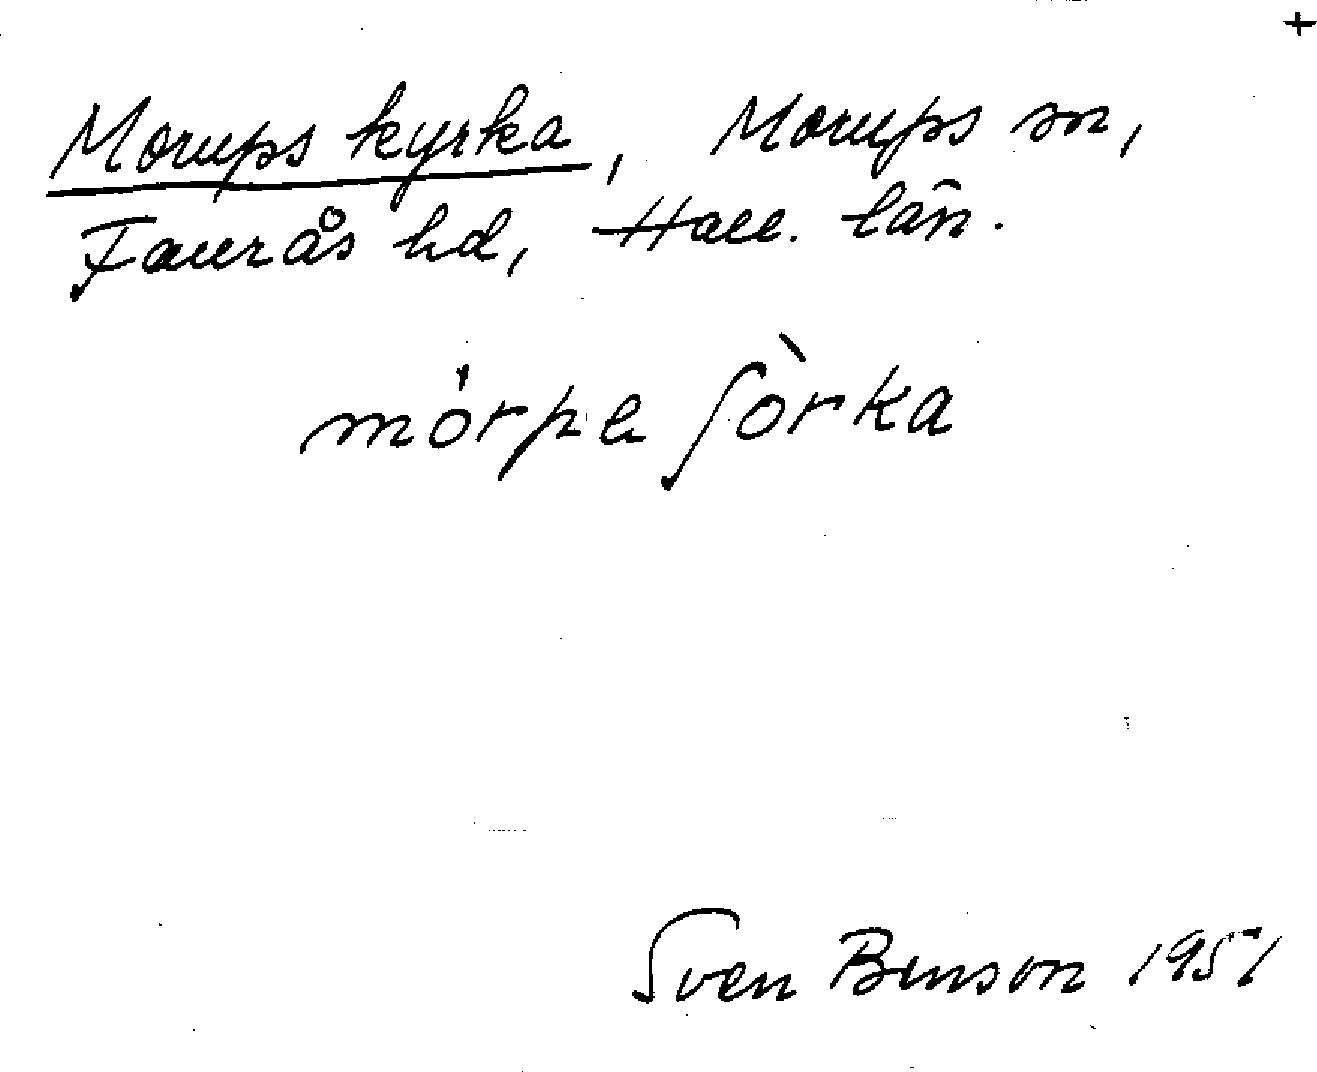 +
Morups kyrka, Morups sn,
Faurås hd, Hall. län.
mórpa ʃòrka
Sven Benson 1951